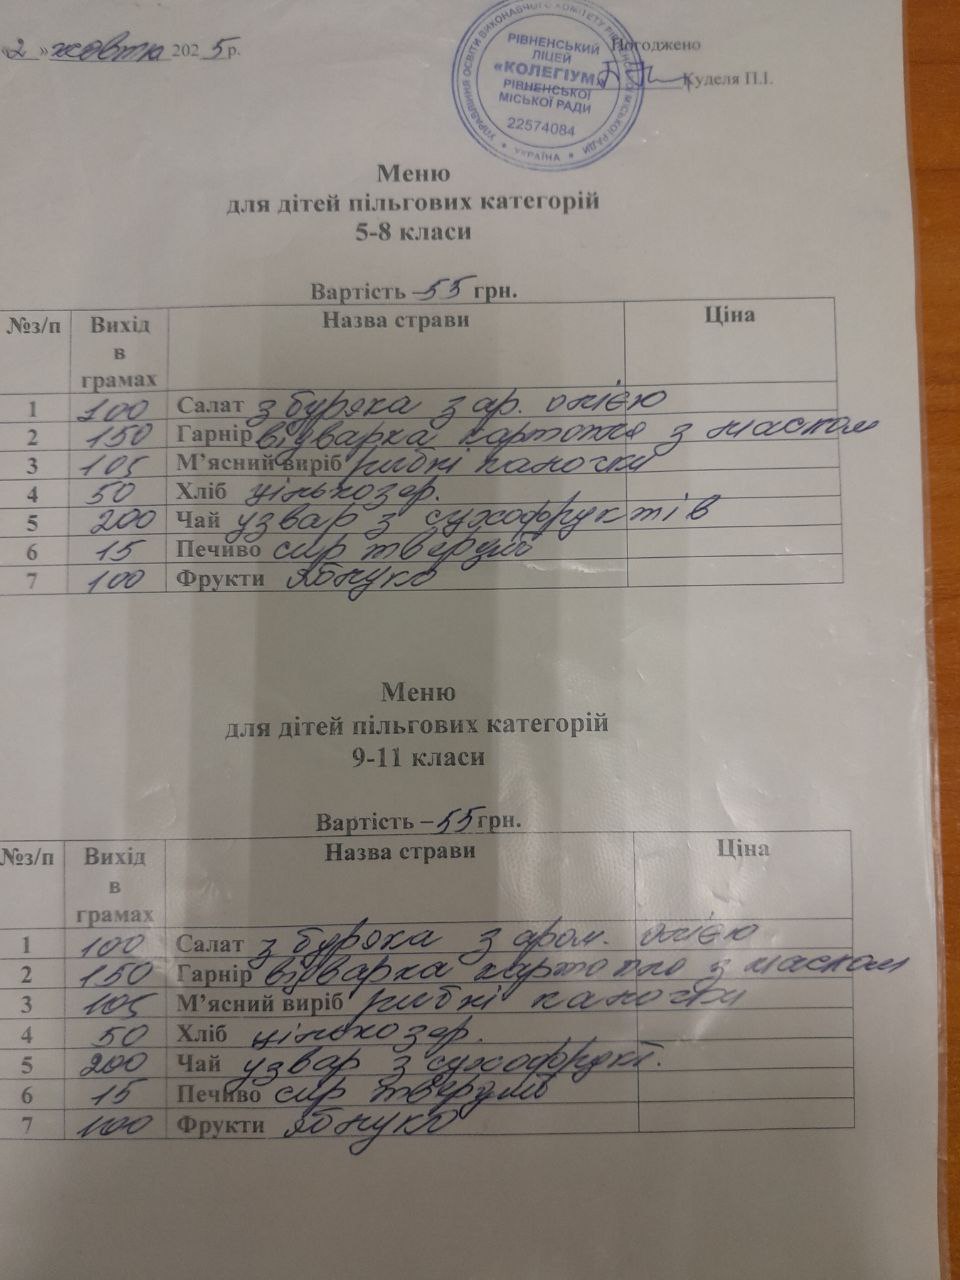 «2» жовтня 2025 р.
Погоджено
Куделя П.І.
УПРАВЛІННЯ ОСВІТИ ВИКОНАВЧОГО КОМІТЕТУ РІВНЕНСЬКОЇ МІСЬКОЇ РАДИ
РІВНЕНСЬКИЙ
ЛІЦЕЙ
«КОЛЕГІУМ»
РІВНЕНСЬКОЇ
МІСЬКОЇ РАДИ
22574084
* УКРАЇНА *
Меню
для дітей пільгових категорій
5-8 класи
Вартість – 55 грн.
№з/п Вихід в грамах Назва страви Ціна
1 100 Салат з буряка з ар. олією
2 150 Гарнір відварка картопля з маслом
3 105 М’ясний виріб рибні палочки
4 50 Хліб цільнозер.
5 200 Чай узвар з сухофруктів
6 15 Печиво сир твердий
7 100 Фрукти яблуко
Меню
для дітей пільгових категорій
9-11 класи
Вартість – 55 грн.
№з/п Вихід в грамах Назва страви Ціна
1 100 Салат з буряка з аром. олією
2 150 Гарнір відварка картопля з маслом
3 105 М’ясний виріб рибні палочки
4 50 Хліб цільнозер.
5 200 Чай узвар з сухофрукт.
6 15 Печиво сир твердий
7 100 Фрукти яблуко